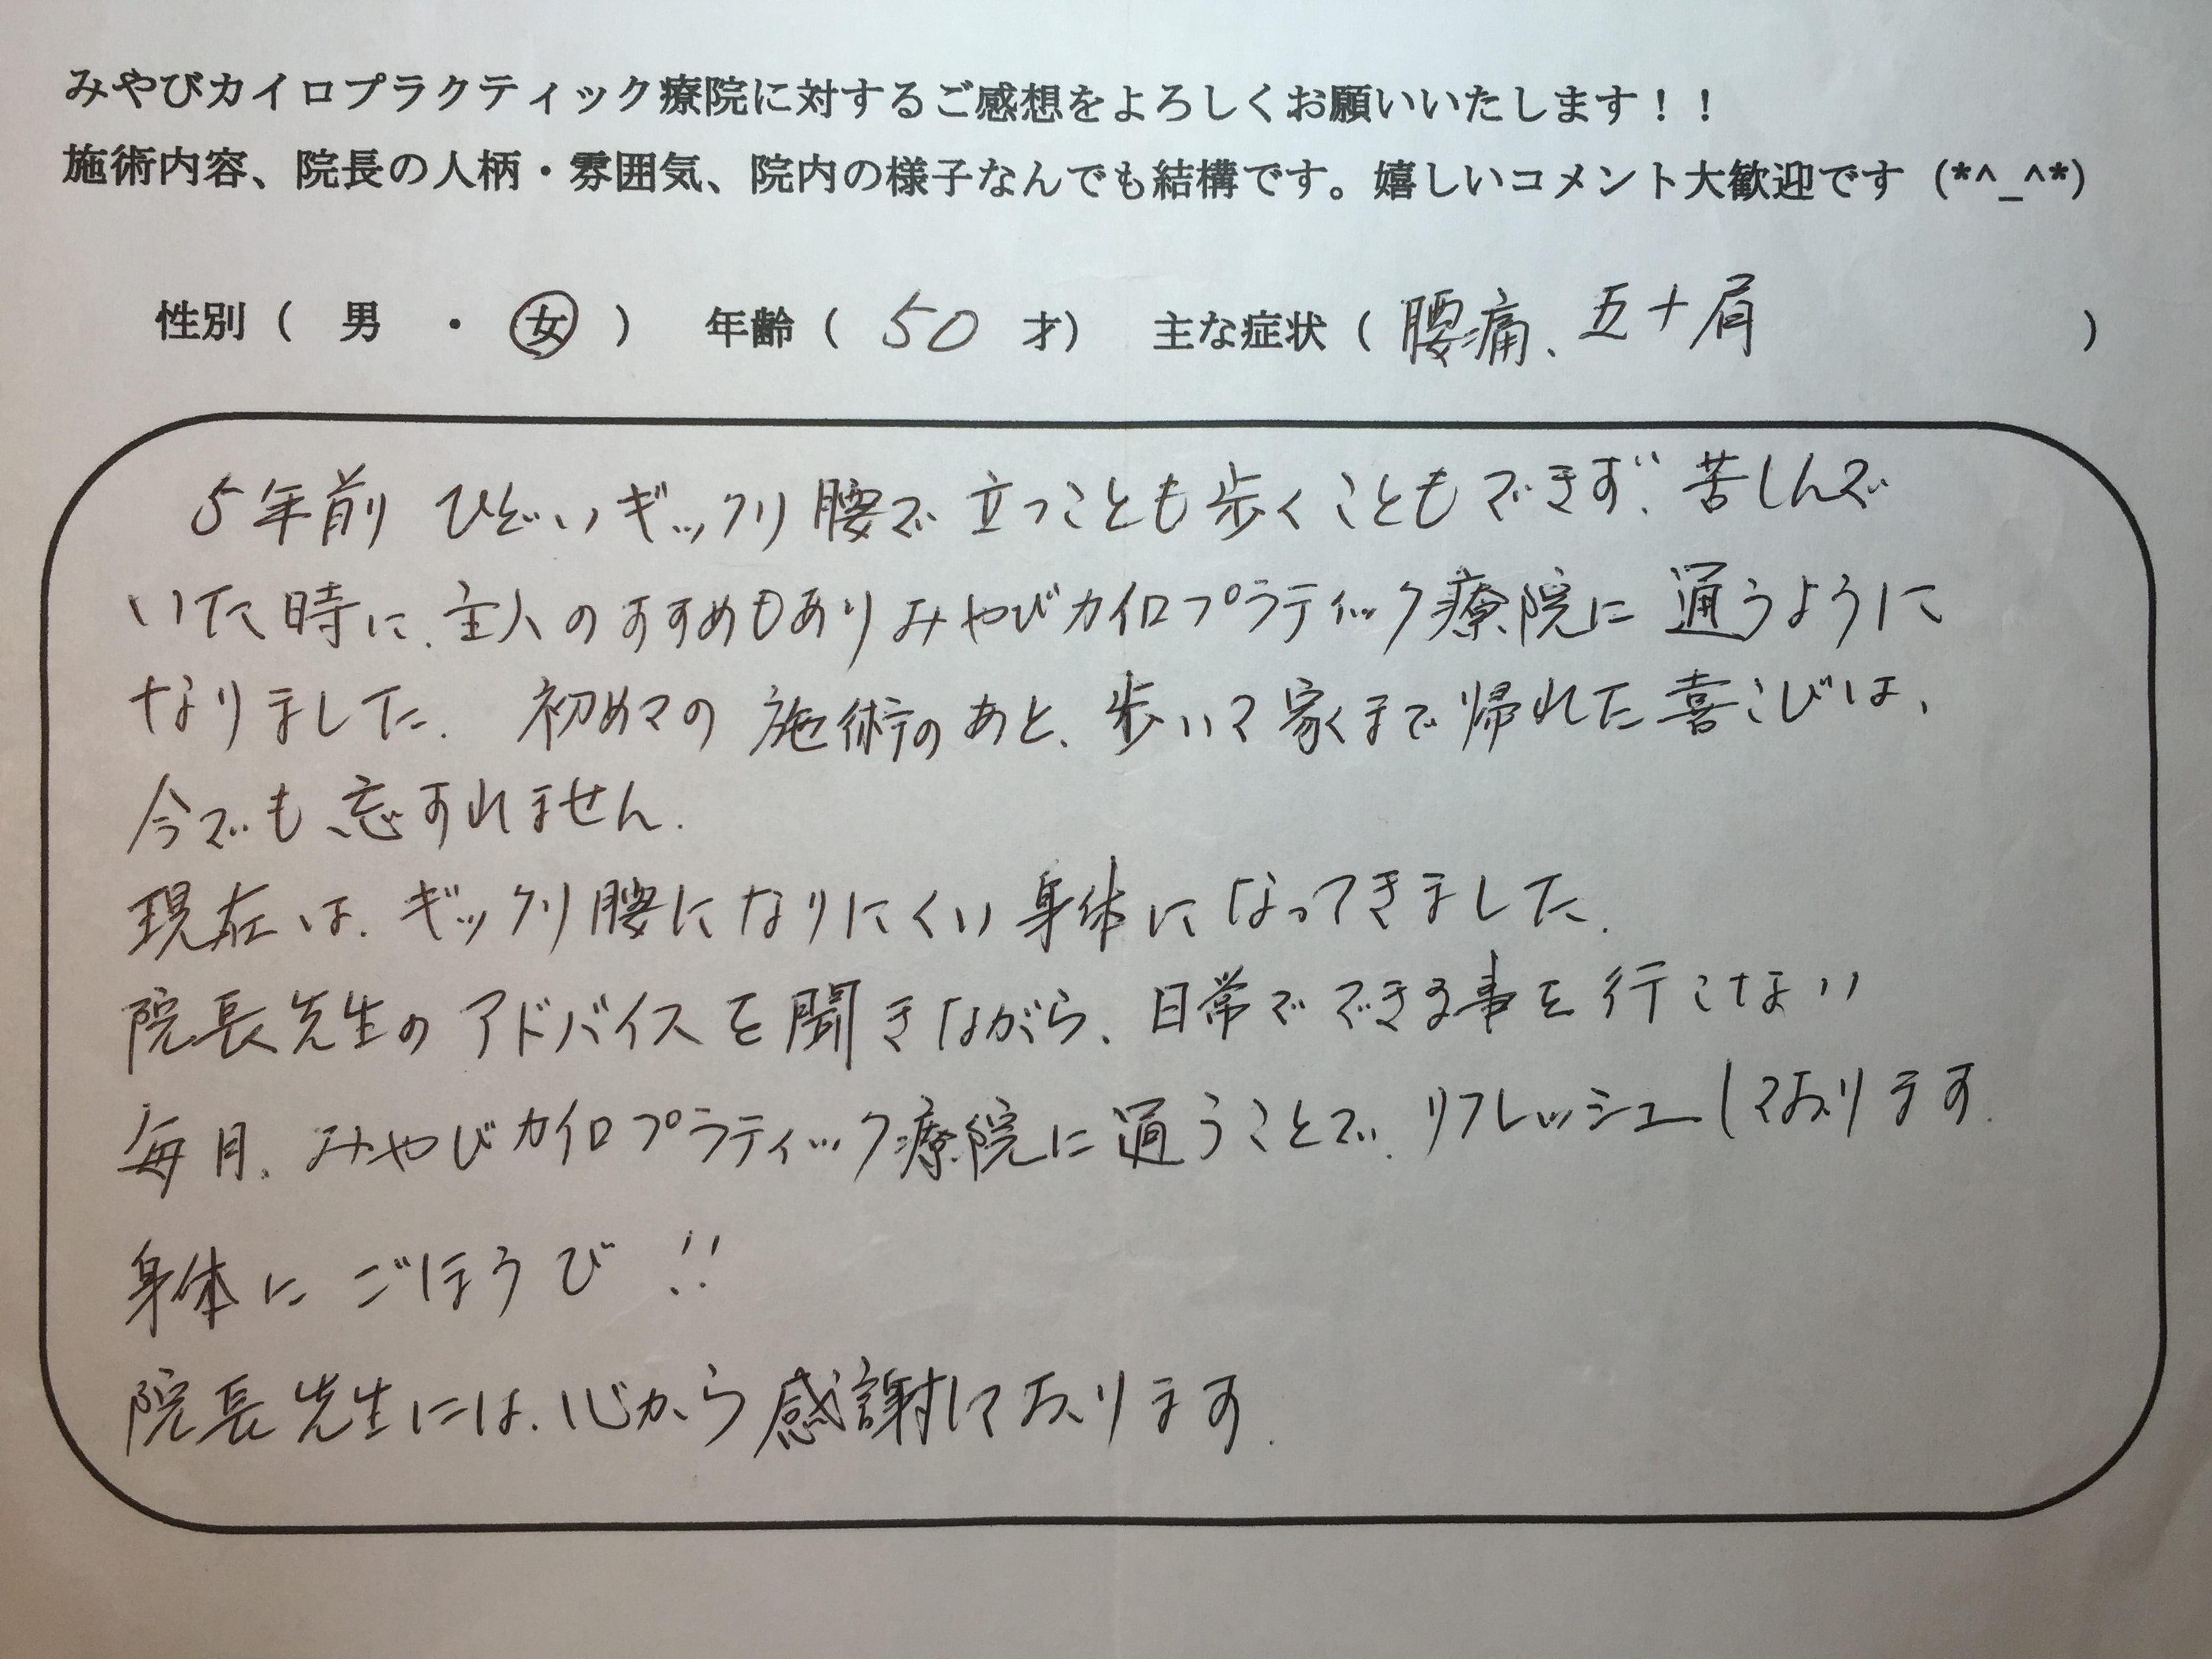 みやびカイロプラクティック療院に対するご感想をよろしくお願いいたします！！
施術内容、院長の人柄・雰囲気、院内の様子なんでも結構です。嬉しいコメント大歓迎です（*^_^*）
性別（ 男 ・ 女 ） 年齢（ 50 才） 主な症状（ 腰痛、五十肩 ）
5年前 ひどいギックリ腰で 立つことも歩くこともできず、苦しんで
いた時に、主人のすすめもあり みやびカイロプラティック療院に 通うように
なりました。 初めての 施術のあと、歩いて 家まで 帰れた喜こびは、
今でも 忘すれません。
現在は、ギックリ腰になりにくい 身体になってきました。
院長先生の アドバイスを聞きながら、日常でできる事を行こない
毎月、みやびカイロプラティック療院に通うことで、リフレッシュしております。
身体に ごほうび！！
院長先生には、心から感謝しております。